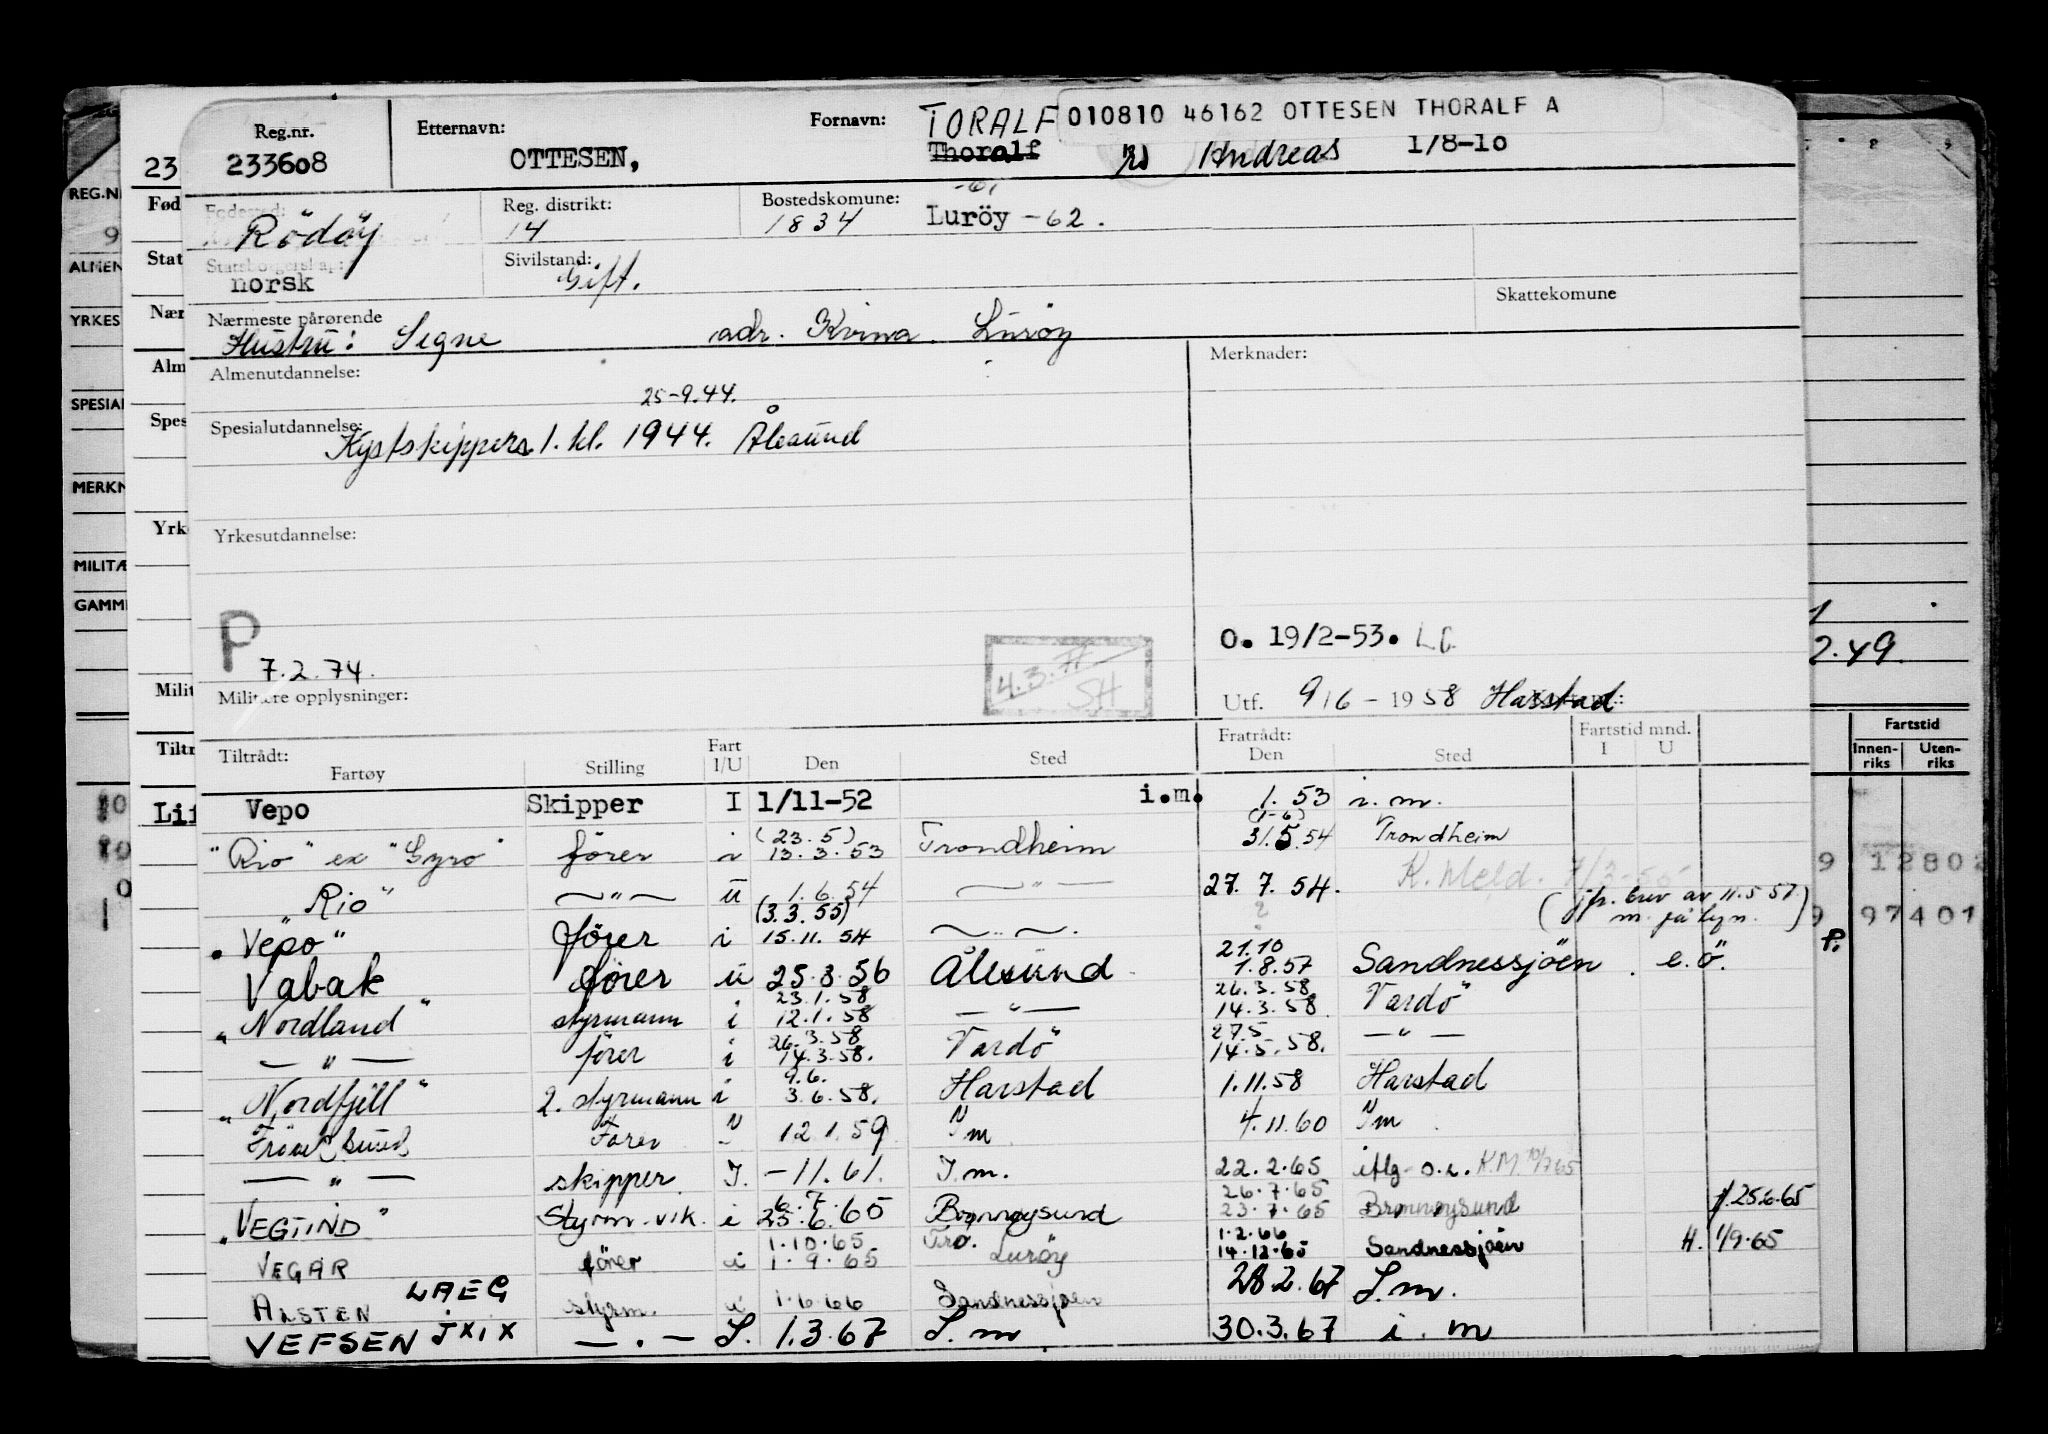 Reg.nr. Etternavn: Fornavn: TORALF 010810 46162 OTTESEN THORALF A
23 233608 OTTESEN, Thoralf Andreas 1/8-10
REG.N
Fød Fødested: Reg. distrikt: Bostedskomune: -61
9 Rödöy 14 1834 Luröy -62.
ALMEN Stat Statsborgerskap: Sivilstand:
norsk Gift.
YRKES Nær Nærmeste pårørende Skattekomune
Hustru: Signe adr. Kvina Luröy
Alm Almenutdannelse: Merknader:
25-9.44.
SPESIAL Spes Spesialutdannelse:
Kystskippers 1. kl. 1944. Ålesund
MERKN
Yrk Yrkesutdannelse:
MILITÆ
GAMM
P O. 19/2-53. 2.49.
7.2.74. 4.3. SH
Milit Militære opplysninger: Utf. 9/6 - 1958 Harstad
Tiltr Tiltrådt: Fart Fratrådt: Fartstid mnd. Fartstid
Fartøy Stilling I/U Den Sted Den Sted I U Innen-riks Uten-riks
Vepo Skipper I 1/11-52 i.m. 1.53 i.m.
(23.5) (1-6)
"Rio" ex "Gyro" förer i 13.3.53 Trondheim 31.5.54 Trondheim
K. Meld. 7/3-55
"Rio" —"— u 1.6.54 —"— 27.7.54. (jfr. brev av 11.5.57
(3.3.55)
"Vepo" förer i 15.11.54 —"—.
21.10
Vabak förer u 25.3.56 Ålesund 1.8.57 Sandnessjöen. e.ö.
23.1.58 26.3.58
"Nordland" styrmann i 12.1.58 —"— 14.3.58 Vardö
26.3.58 27.5
—"— förer i 14.3.58. Vardö 14.5.58. —"—
9.6.
"Nordfjell" 2. styrmann i 3.6.58. Harstad 1.11.58 Harstad
Förer 12.1.59 Im 4.11.60 Im
—"— skipper I. -11.61. I.m. 22.2.65 iflg. o.r. K.M. 10/7 65
6.7 26.7.65
"VEGTIND" Styrm. vik. i 25.6.65 Brønnøysund 23.7.65 Brønnøysund 25.6.65
1.10.65 Tro. 1.2.66
VEGAR förer i 1.9.65 Luröy 14.12.65 Sandnessjøen H. 1/9.65
ALSTEN LAEG styrm. u 1.6.66 Sandnessjøen 28.2.67 I.m.
VEFSEN JXIX —"— I. 1.3.67 I.m 30.3.67 i.m